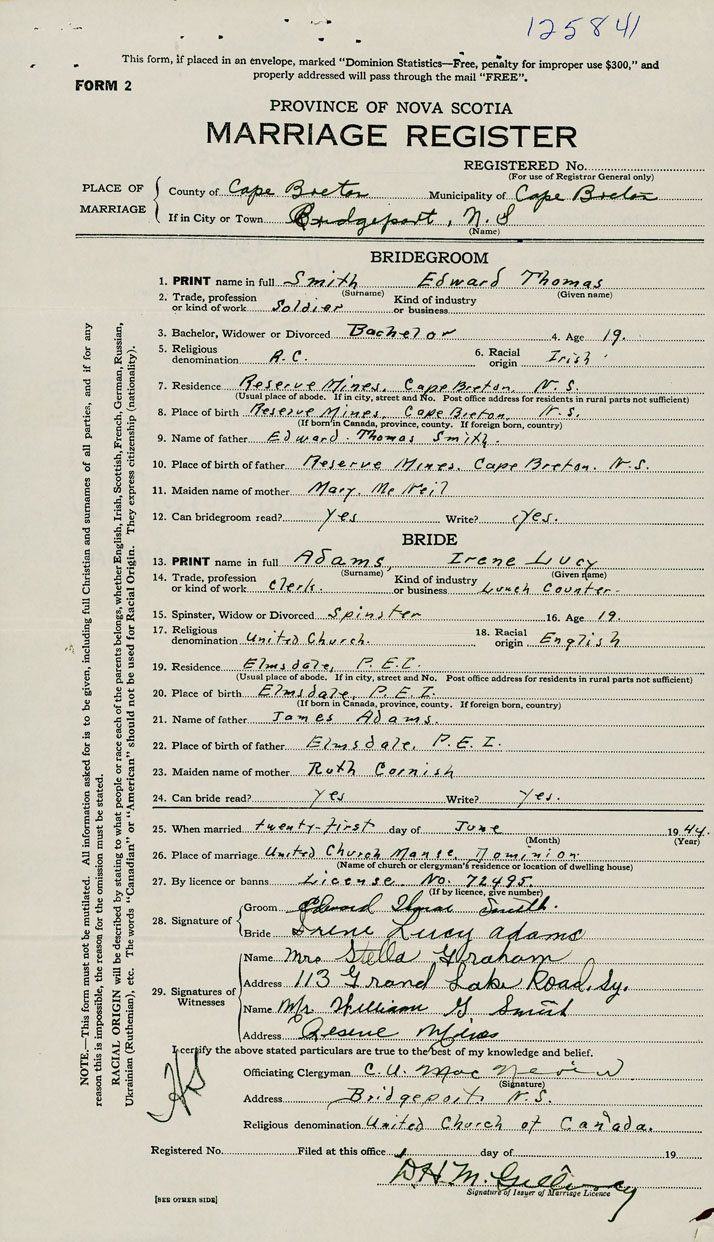 125841
This form, if placed in an envelope, marked "Dominion Statistics—Free, penalty for improper use $300," and
properly addressed will pass through the mail "FREE".
FORM 2
PROVINCE OF NOVA SCOTIA
MARRIAGE REGISTER
REGISTERED No.
(For use of Registrar General only)
PLACE OF MARRIAGE
County of Cape Breton Municipality of Cape Breton
If in City or Town Bridgeport, N. S
(Name)
BRIDEGROOM
1. PRINT name in full Smith Edward Thomas
(Surname) (Given name)
2. Trade, profession or kind of work Soldier Kind of industry or business
3. Bachelor, Widower or Divorced Bachelor 4. Age 19.
5. Religious denomination R.C. 6. Racial origin Irish
7. Residence Reserve Mines, Cape Breton, N. S.
(Usual place of abode. If in city, street and No. Post office address for residents in rural parts not sufficient)
8. Place of birth Reserve Mines, Cape Breton, N. S.
(If born in Canada, province, county. If foreign born, country)
9. Name of father Edward Thomas Smith.
10. Place of birth of father Reserve Mines, Cape Breton. N.S.
11. Maiden name of mother Mary. McNeil
12. Can bridegroom read? Yes Write? Yes.
BRIDE
13. PRINT name in full Adams, Irene Lucy
(Surname) (Given name)
14. Trade, profession or kind of work Clerk. Kind of industry or business Lunch Counter.
15. Spinster, Widow or Divorced Spinster 16. Age 19.
17. Religious denomination United Church. 18. Racial origin English
19. Residence Elmsdale, P.E.I.
(Usual place of abode. If in city, street and No. Post office address for residents in rural parts not sufficient)
20. Place of birth Elmsdale, P.E.I.
(If born in Canada, province, county. If foreign born, country)
21. Name of father James Adams.
22. Place of birth of father Elmsdale, P.E.I.
23. Maiden name of mother Ruth Cornish
24. Can bride read? Yes Write? Yes.
25. When married twenty-first day of June 1944.
(Month) (Year)
26. Place of marriage United Church Manse, Dominion
(Name of church or clergyman's residence or location of dwelling house)
27. By licence or banns License No. 72495.
(If by licence, give number)
28. Signature of
Groom Edward Thomas Smith.
Bride Irene Lucy Adams
29. Signatures of Witnesses
Name Mrs Stella Graham
Address 113 Grand Lake Road, Sy.
Name Mr William G Smith
Address Reserve Mines
I certify the above stated particulars are true to the best of my knowledge and belief.
Officiating Clergyman C. U. Mac Nevin
(Signature)
Address Bridgeport N.S.
Religious denomination United Church of Canada.
Registered No. Filed at this office day of 19
D.H. McGillivray
Signature of Issuer of Marriage Licence
[SEE OTHER SIDE]
NOTE.—This form must not be mutilated. All information asked for is to be given, including full Christian and surnames of all parties, and if for any
reason this is impossible, the reason for the omission must be stated.
RACIAL ORIGIN will be described by stating to what people or race each of the parents belongs, whether English, Irish, Scottish, French, German, Russian,
Ukrainian (Ruthenian), etc. The words "Canadian" or "American" should not be used for Racial Origin. They express citizenship (nationality).